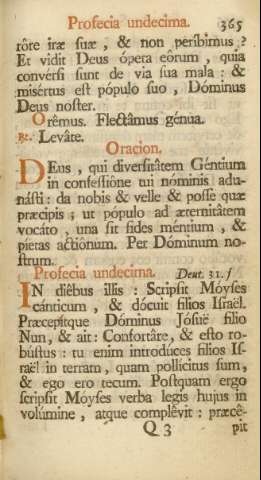 Profecia undecima. 365
rôre iræ suæ , & non peribimus ?
Et vidit Deus ópera eórum , quia
convérsi sunt de via sua mala : &
misértus est pópulo suo , Dóminus
Deus noster.
Orêmus. Flectâmus génua.
℞. Levâte.
Oracion.
DEus , qui diversitâtem Géntium
in confessiône tui nóminis adu-
násti : da nobis & velle & posse quæ
præcipis ; ut pópulo ad æternitâtem
vocáto , una sit fides méntium , &
píetas actiônum. Per Dóminum no-
strum.
Profecia undecima. Deut. 31. f
IN diêbus illis : Scripsit Móyses
cánticum , & dócuit filios Israël.
Præcepítque Dóminus Jósuë filio
Nun, & ait : Confortâre, & esto ro-
bústus : tu enim introdúces filios Is-
raël in terram, quam pollicitus sum,
& ego ero tecum. Postquam ergo
scripsit Móyses verba legis hujus in
volúmine , atque complêvit : præcê-
Q 3 pit